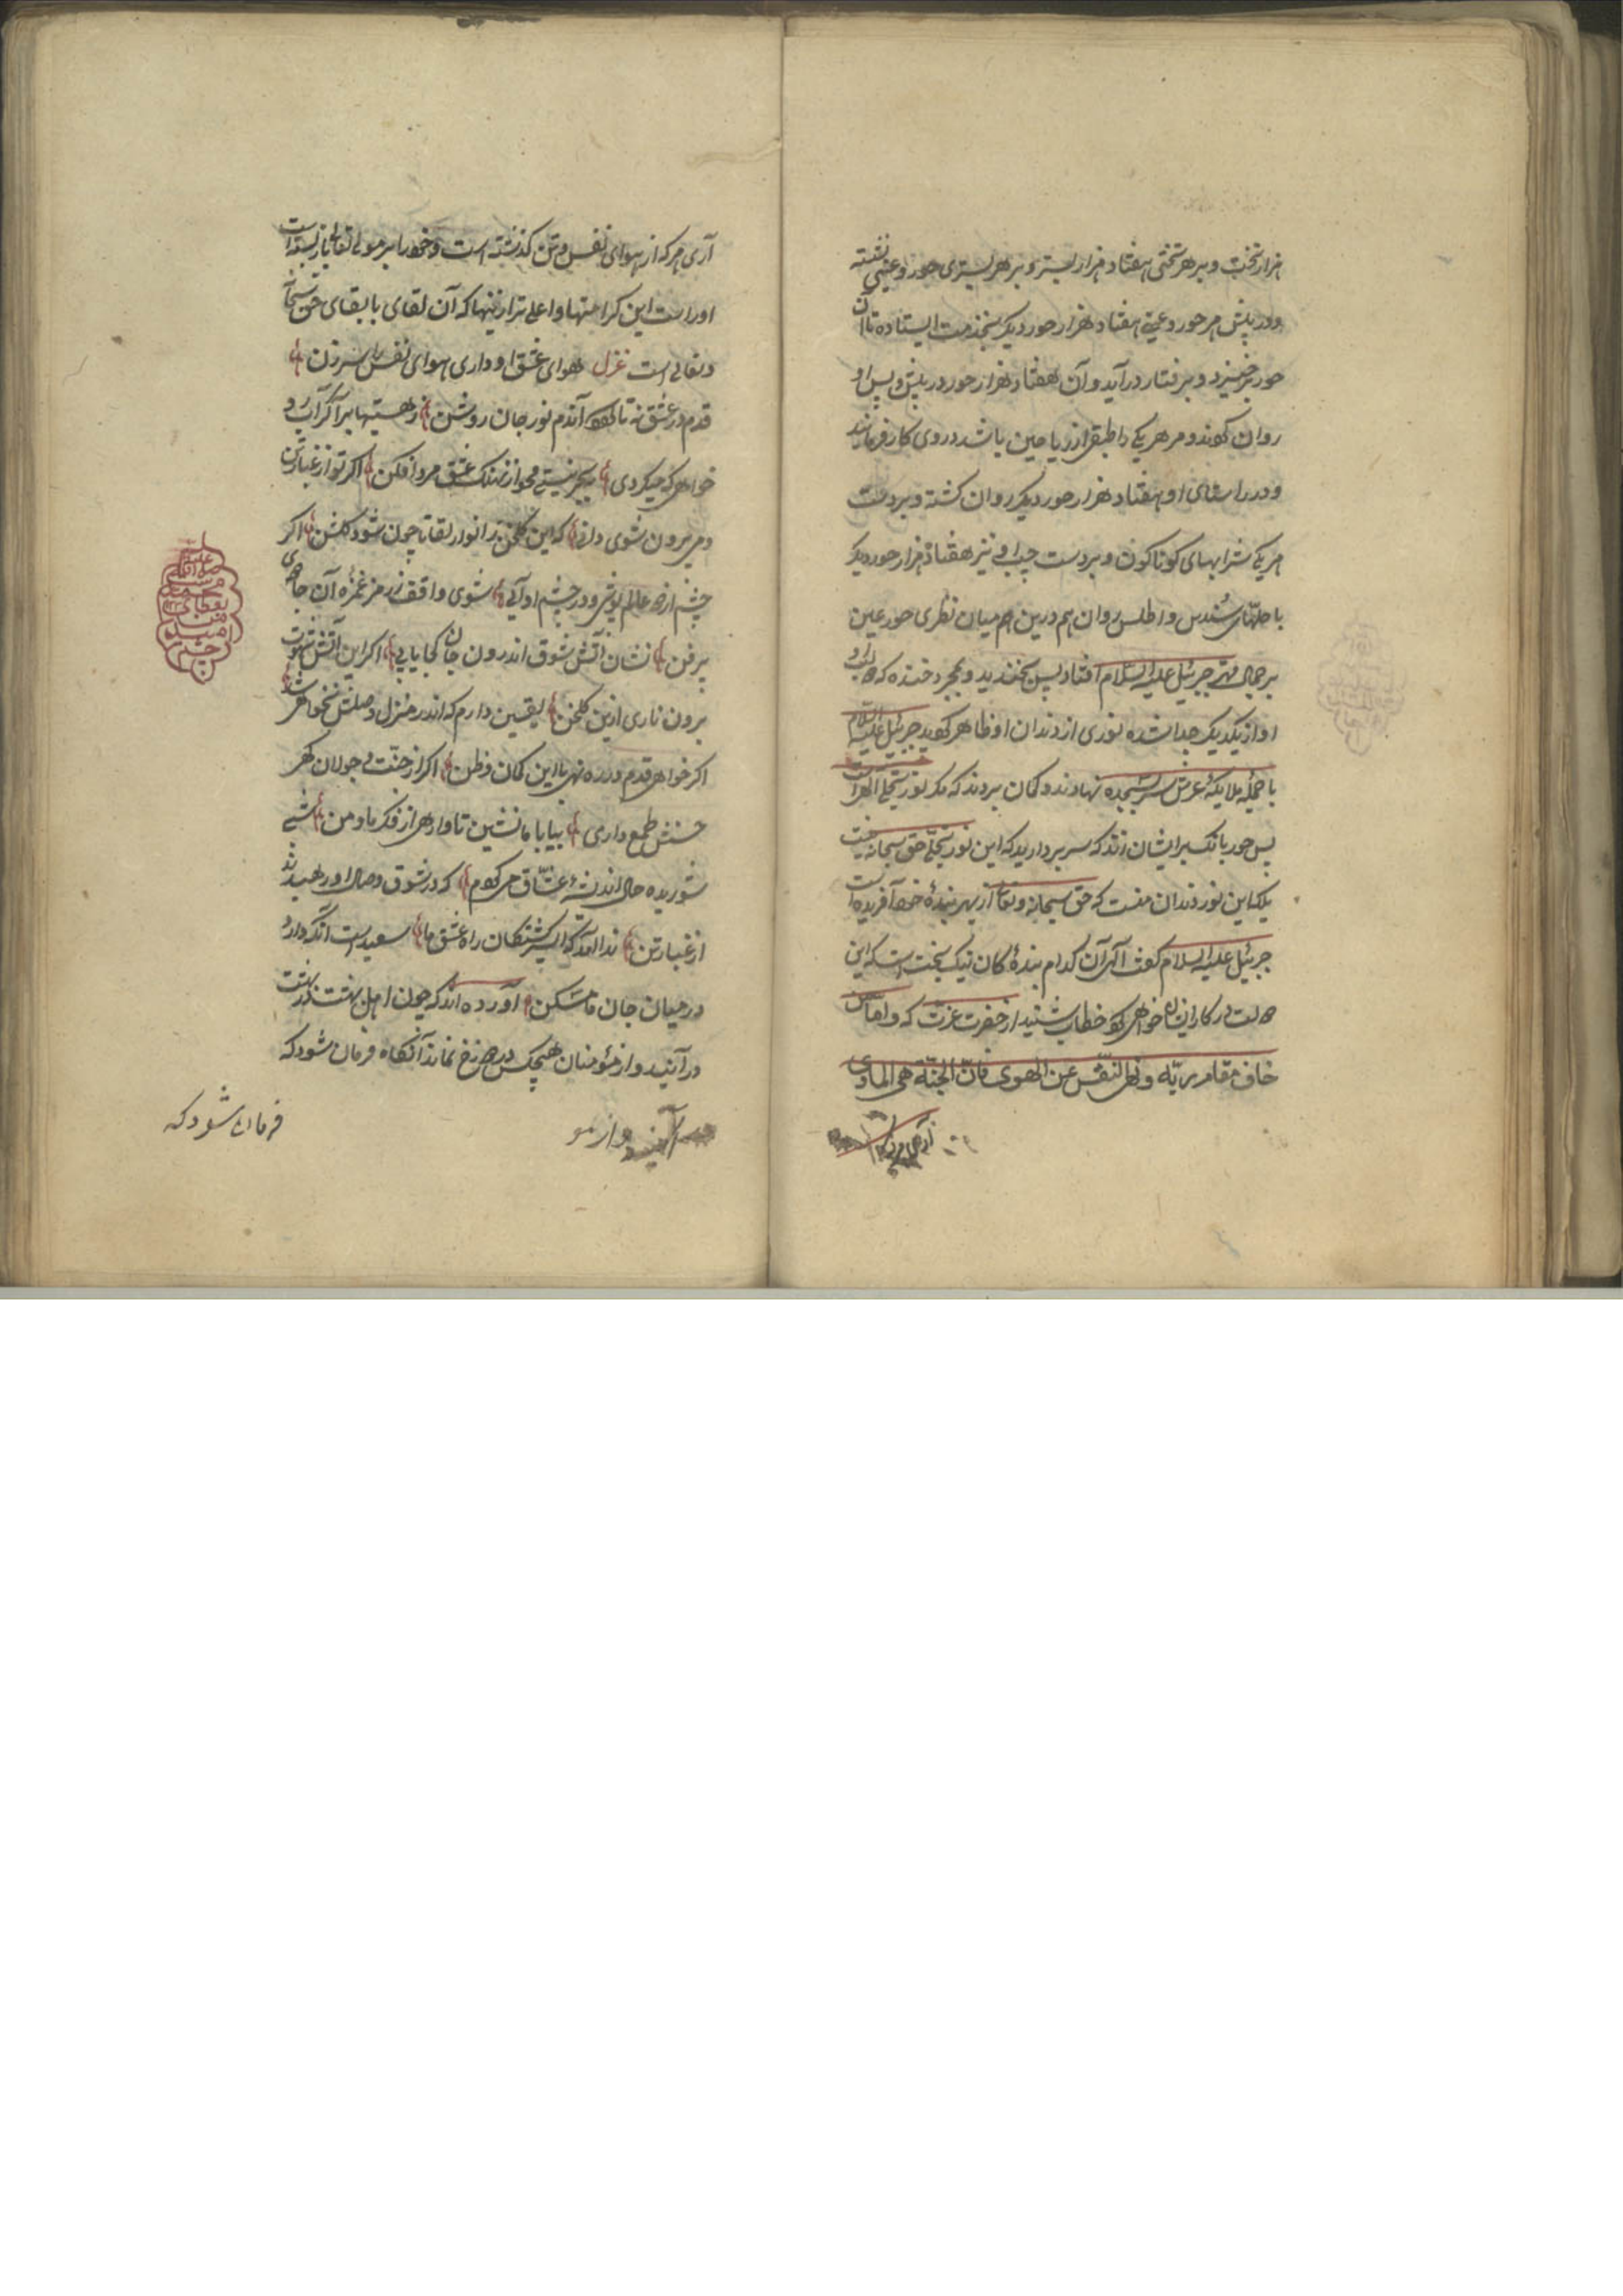 هزار تخت و بر هر تختی هفتاد هزار بستر و بر هر بستری حور و عینی نشسته
و در پیش هر حور و عینی هفتاد هزار حور دیکر بخدمت ایستاده تا آن
حور برخیزد و برفتار درآید و آن هفتاد هزار حور در پیش و پس او
روان شوند و مر هر یکی را طبقی از ریاحین باشد در روی کار فرمایند
و در راستای او هفتاد هزار حور دیکر روان کشته و بر دست
هر یکی شرابهای کوناکون و بر دست چپ او نیز هفتاد هزار حور دیکر
با حلّهای سُندس و اطلس روان هم درین میان نظری حور عین
بر جمال مهتر جبرئیل علیه السلام افتاد پس بخندید و بمجرد خنده که لب
او از یکدیکر جدا شده نوری از دندان او ظاهر جبرئیل علیه السلام
با جملهٔ ملایکهٔ عرش سر بسجده نهادند و کمان بردند که مکر نور تجلی الله است
پس حور بانک بر ایشان زند که سر بردارید که این نور تجلّی حق سبحانه نیست
بلکه این نور دندان منست که حق سبحانه و تعالی از بهر بندهٔ خود آفریده است
جبرئیل علیه السلام کفت الهی آن کدام بندهٔ کان نیک بخت است که این
دولت در کار ایشان خواهی کرد خطاب شنید از حضرت عزت که و امّا من
خاف مقام ربّه و نهی النّفس عن الهوی فانّ الجنّة هی المأوی
آری هرکه
آری هرکه از هوای نفس و تن کذشته است و خود را بر مولی تعالی بازبسته است
او راست این کرامتها و اعلی تر ازینها که آن لقای با بقای حق سبحانه
و تعالی است غزل هوای عشق او داری هوای نفس را سر زن
قدم در عشق نه تا شود آندم نور جان روشن ز هستیها برآ کر آبرو
خواهی که میکردی بجز نیستی مجو از نهنک عشق مرد افکن اکر تو از غبار تن
دمی بیرون شوی دانی که این کلخن ز انوار لقا چون شود کلشن اکر
چشم از دو عالم پوشی و در چشم او آیی شوی واقف ز رمز غمزه آن جادوی
پرفن نشان آتش شوق اندرون جان کجا یابی اکر این آتش شهوت
برون ناری ازین کلخن یقین دارم که اندر منزل وصلش نخواهی شد
اکر خواهی قدم در ره نهی با این کمان و ظن اکر از جنّت و جولان کهر
حسنش طمع داری بیا با ما نشین تا وارهی از فکر ما و من شبی
شوریده حال اندیشهٔ عشّاق می کردم که در شوق وصال او رهیدند
از غبار تن ندا آمد که ای سرکشتکان راه عشق ما سعید است آنکه دارد
در میان جان ما مسکن آورده اند که چون اهل بهشت در بهشت
درآیند و از مؤمنان هیچکس در دوزخ نماند آنکاه فرمان شود که
درآیند و از مو
فرمان شود که